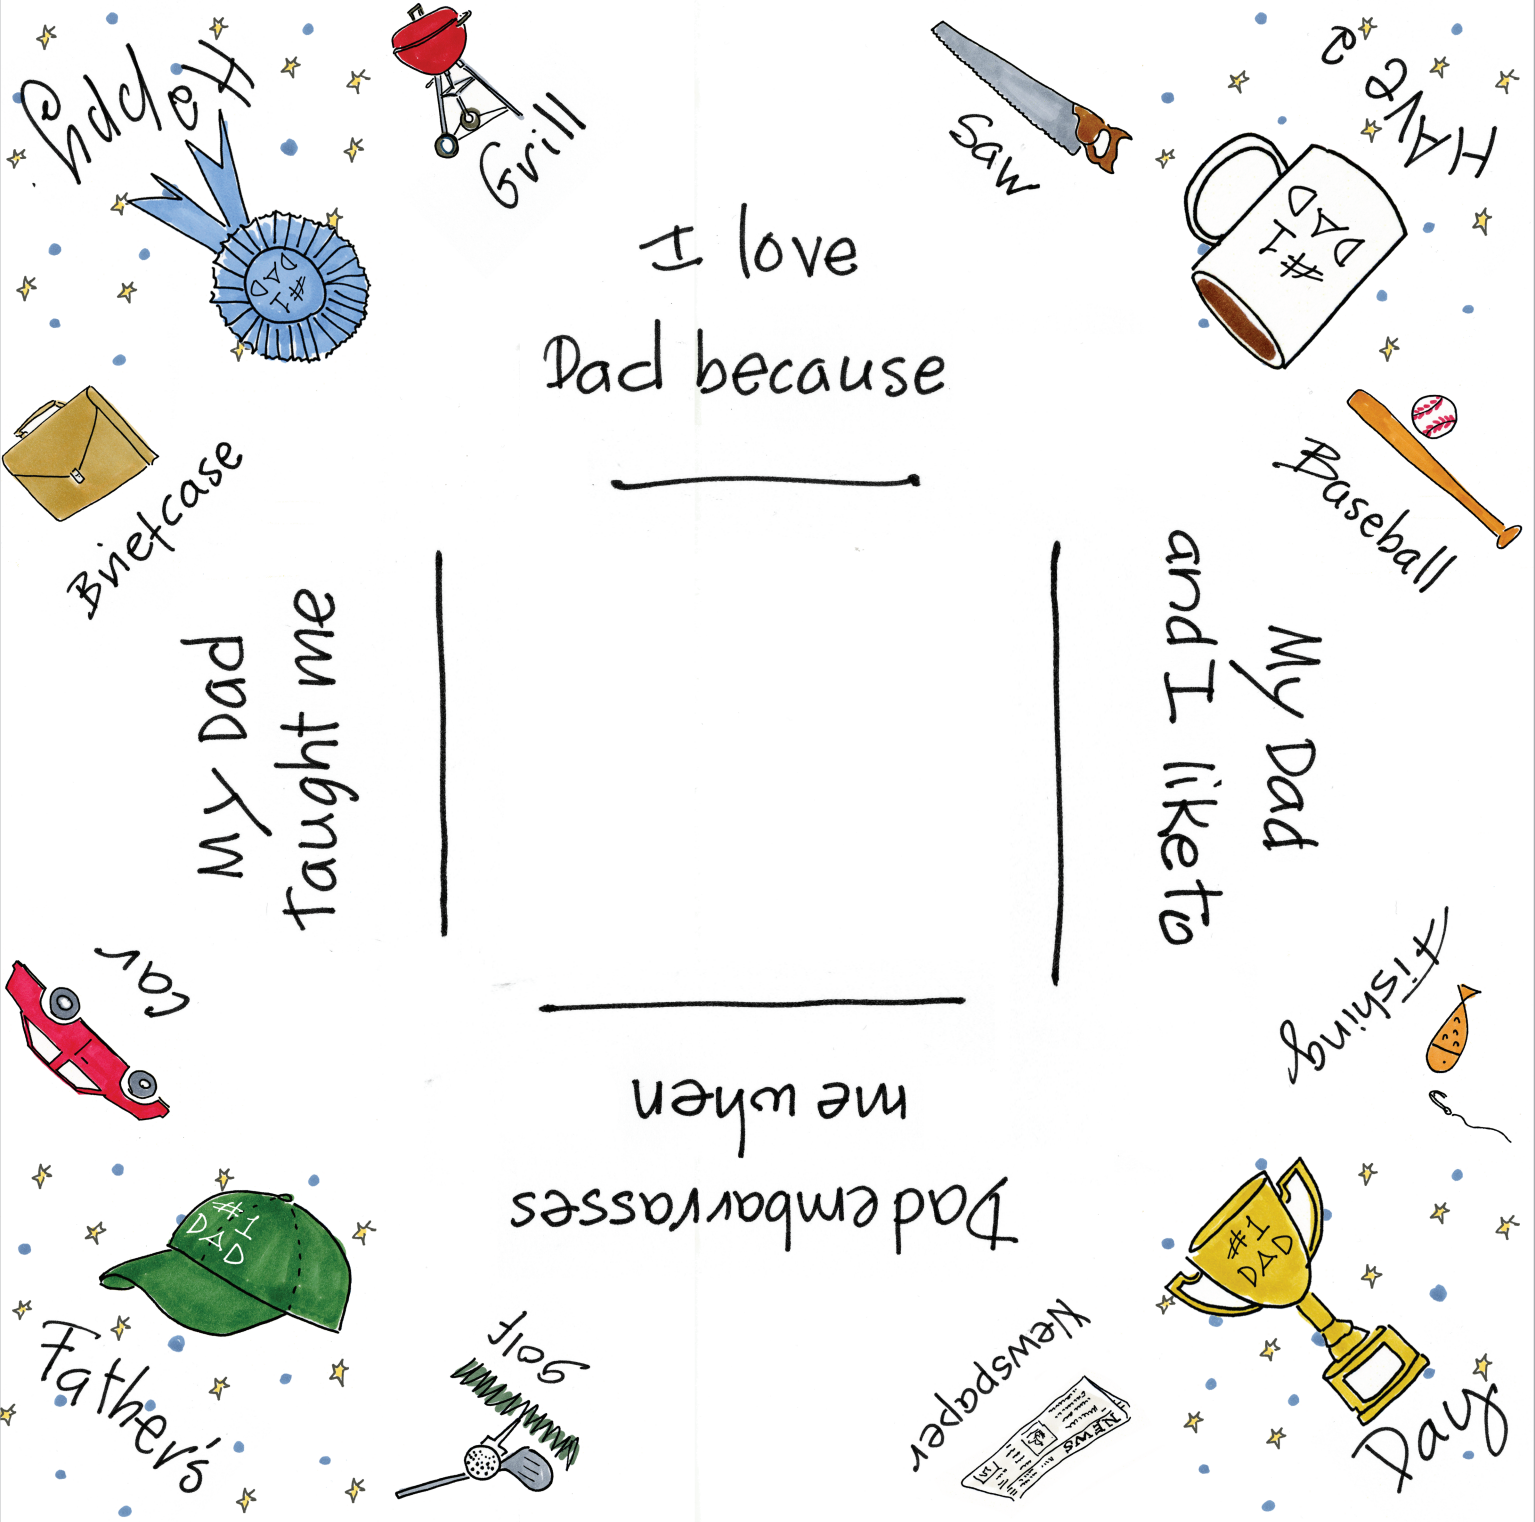 Happy
#1
DAD
Grill
Saw
HAVE a
#1
DAD
I love
Dad because
Briefcase
Baseball
My Dad
Taught me
My Dad
and I like to
Car
Fishing
me when
Dad embarrasses
#1
DAD
Father's
golf
Newspaper
NEWS
#1
DAD
Day